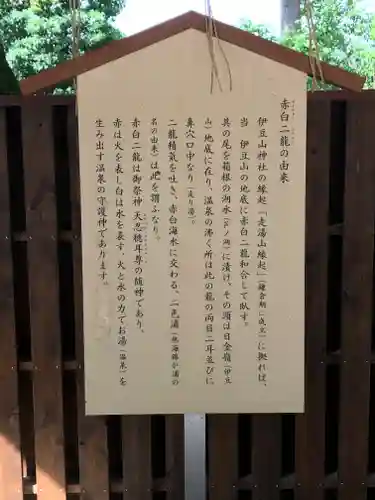 赤白二龍の由来
伊豆山神社の縁起「走湯山縁起」(鎌倉期に成立)に拠れば、
当 伊豆山の地底に赤白二龍和合して臥す。
其の尾を箱根の湖水(芦ノ湖)に漬け、その頭は日金嶺(伊豆
山)地底に在り、温泉の沸く所は此の龍の両目二耳並びに
鼻穴口中なり(走り湯)
二龍精気を吐き、赤白海水に交わる、二色浦(熱海錦ヶ浦の
名の由来)は此を謂ふなり。
赤白二龍は御祭神 天忍穂耳尊の随神であり、
赤は火を表し白は水を表す、火と水の力でお湯(温泉)を
生み出す温泉の守護神であります。